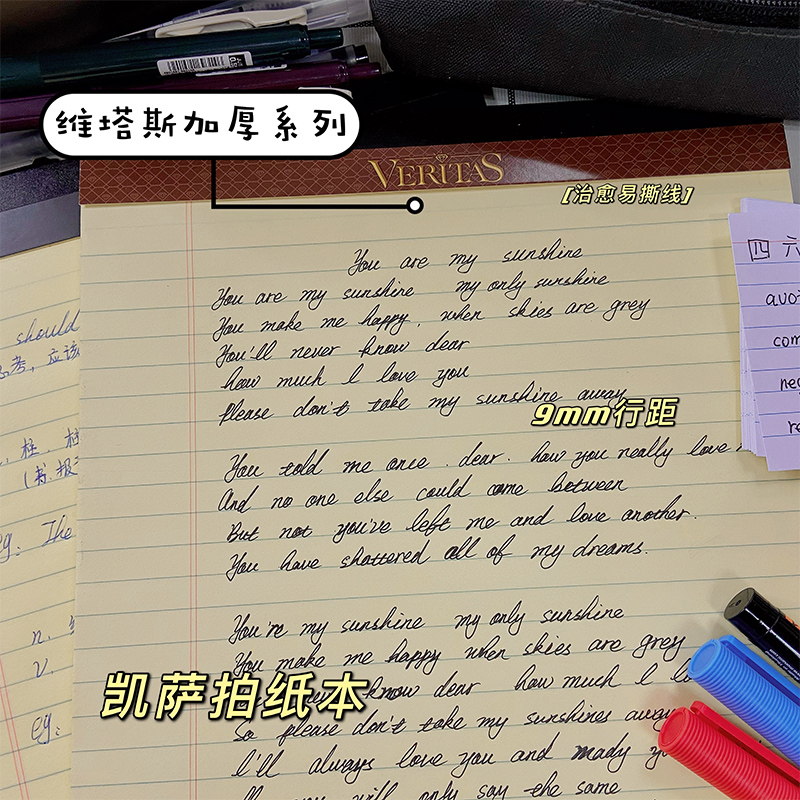 维塔斯加厚系列
VERITAS
[治愈易撕线]
You are my sunshine
You are my sunshine my only sunshine
You make me happy, when skies are grey
You'll never know dear
how much I love you
please don't take my sunshine away
9mm行距
You told me once . dear. how you really love
And no one else could come between
But not you've left me and love another.
You have shattered all of my dreams.
You're my sunshine my only sunshine
You make me happy when skies are grey
know dear how much I
凯萨拍纸本
So please don't take my sunshines away
I'll always love you and mady
will only say the same
should
考, 应该
柱
eg: The
n.
v.
eg:
四 六
com